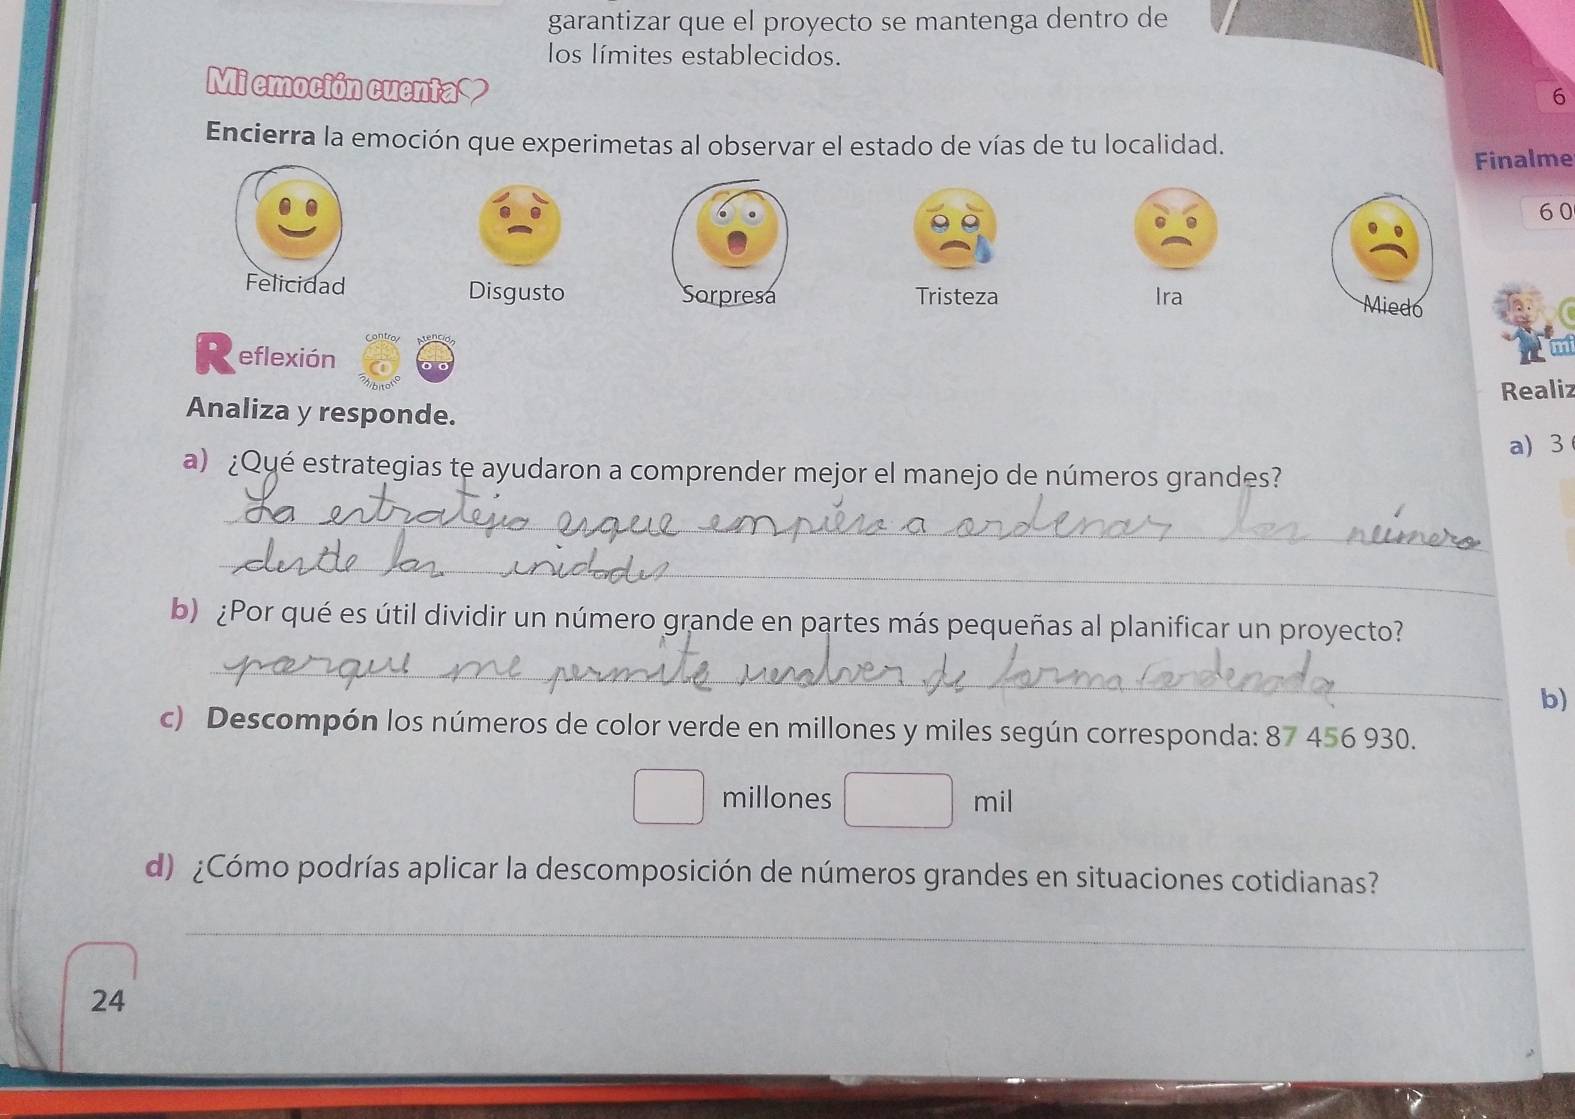 garantizar que el proyecto se mantenga dentro de
los límites establecidos.
Mi emoción cuenta
Encierra la emoción que experimetas al observar el estado de vías de tu localidad.
Felicidad Disgusto Sorpresa Tristeza Ira Miedo
Reflexión
Control
Inhibitorio
Atención
Analiza y responde.
a) ¿Qué estrategias te ayudaron a comprender mejor el manejo de números grandes?
La entratejia esque empiera a ordenar los número
desde las unidades
b) ¿Por qué es útil dividir un número grande en partes más pequeñas al planificar un proyecto?
porque me permite resolver de forma ordenada
c) Descompón los números de color verde en millones y miles según corresponda: 87 456 930.
millones mil
d) ¿Cómo podrías aplicar la descomposición de números grandes en situaciones cotidianas?
24
6
Finalme
6 0
mi
Realiz
a) 3
b)